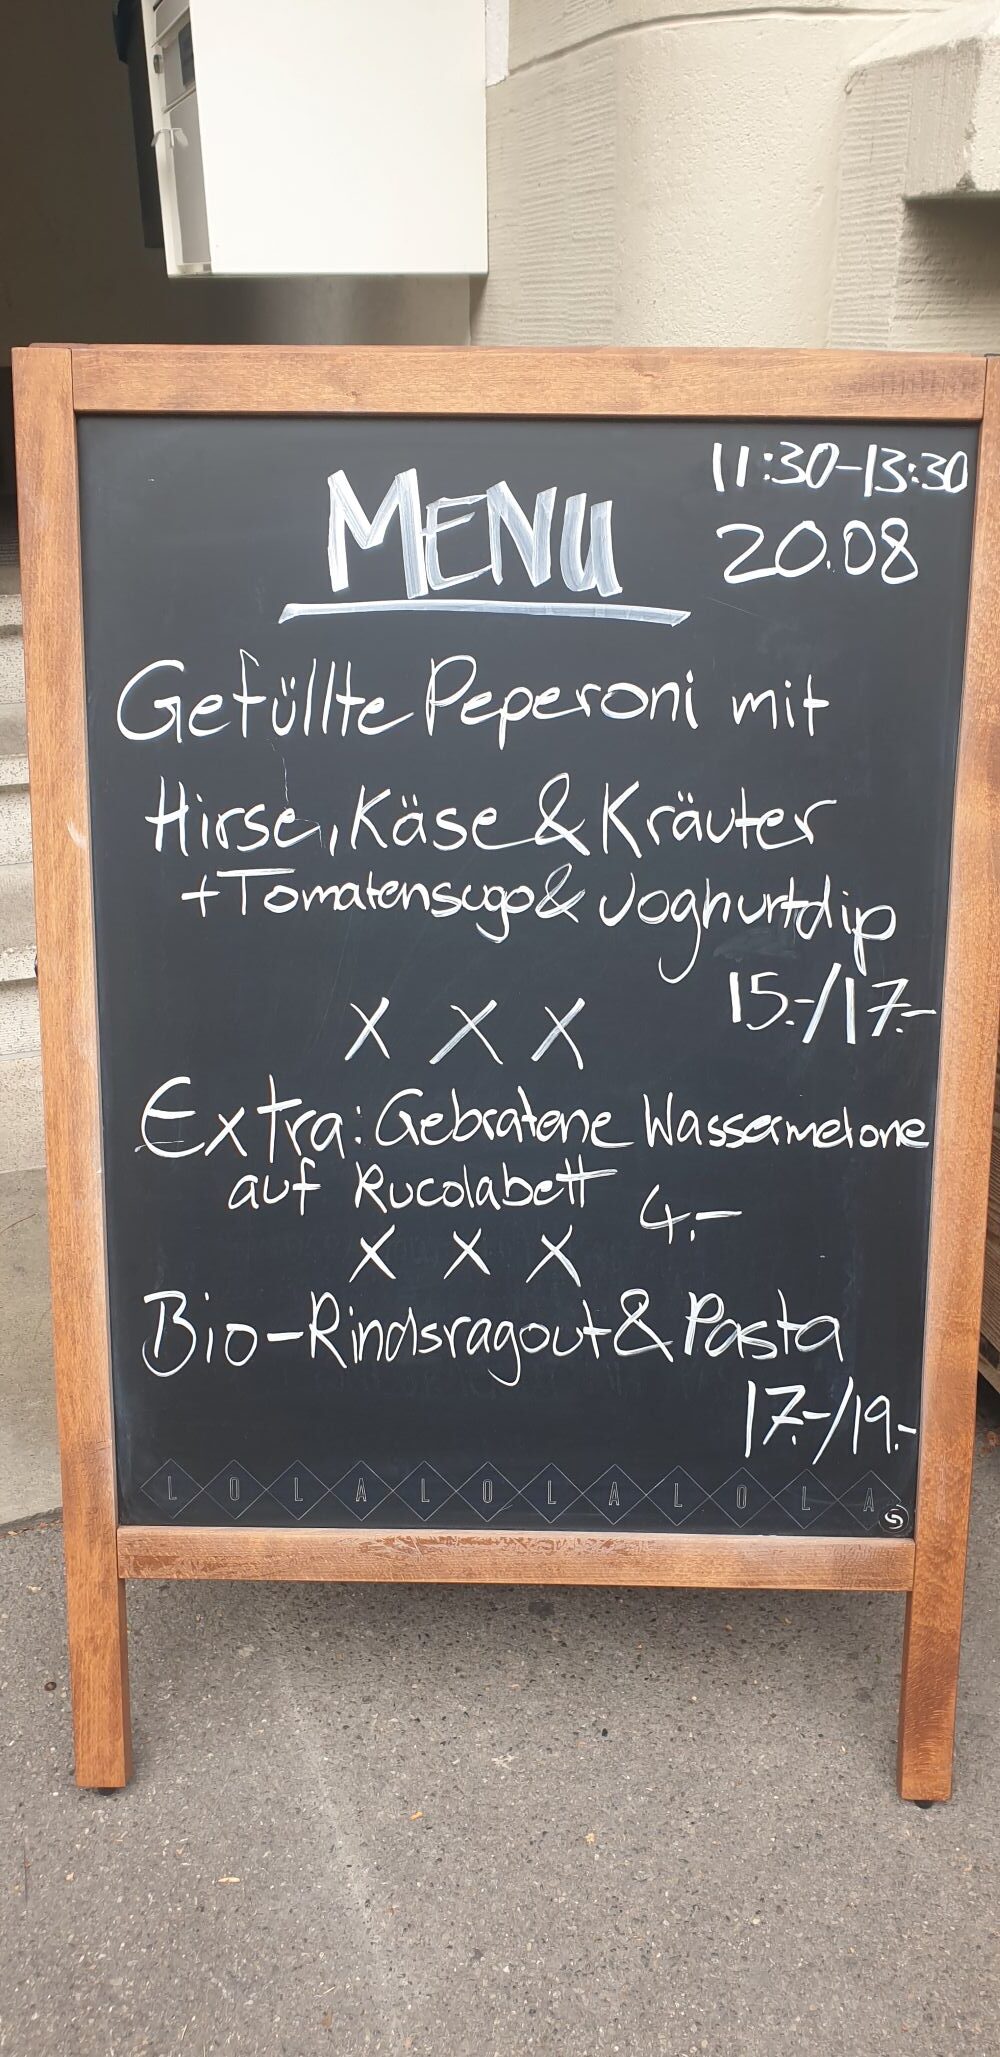 11:30-13:30
MENU
20.08
Gefüllte Peperoni mit
Hirse, Käse & Kräuter
+ Tomatensugo & Joghurtdip
15.-/17.-
X X X
Extra: Gebratene Wassermelone
auf Rucolabett 4.-
X X X
Bio-Rindsragout & Pasta
17.-/19.-
LOLALOLALOLA